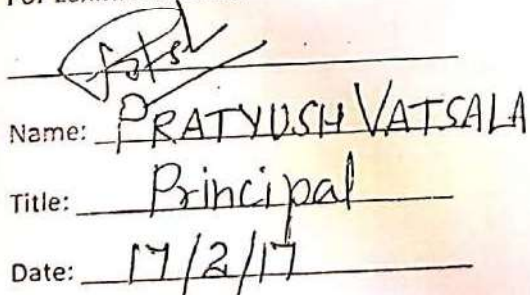 For
Name: PRATYUSH VATSALA
Title: Principal
Date: 17/2/17